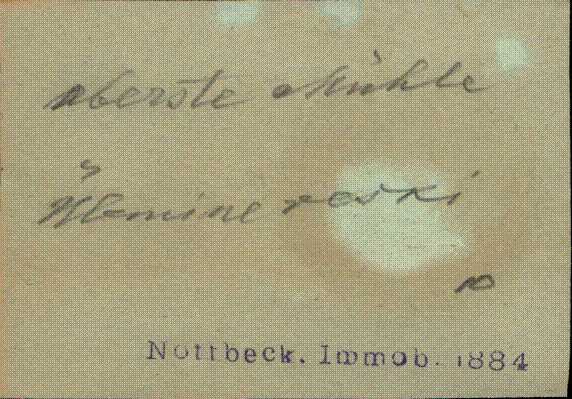 oberste Mühle
Ülemine veski
10
Nottbeck. Immob. 1884